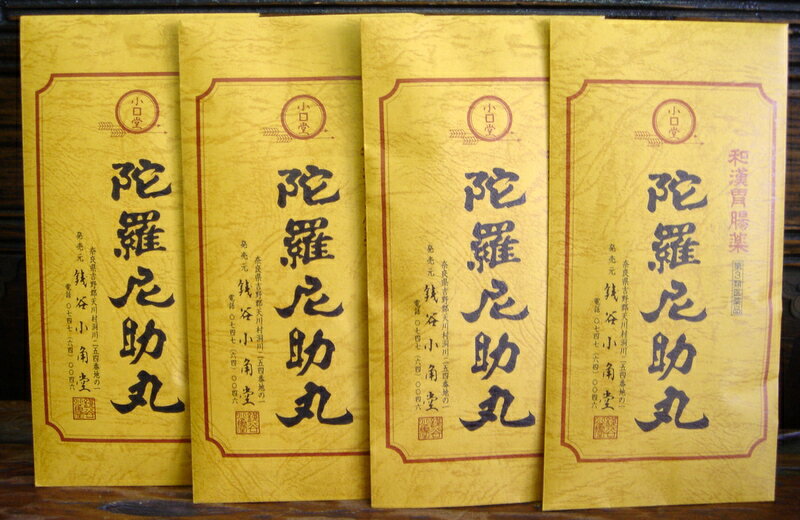 小口堂
陀羅尼助丸
奈良県吉野郡天川村洞川二五四番地の一
発売元 銭谷小角堂
電話 〇七四七(六四)〇〇四六
小口堂
陀羅尼助丸
奈良県吉野郡天川村洞川二五四番地の一
発売元 銭谷小角堂
電話 〇七四七(六四)〇〇四六
小口堂
陀羅尼助丸
奈良県吉野郡天川村洞川二五四番地の一
発売元 銭谷小角堂
電話 〇七四七(六四)〇〇四六
和漢胃腸薬 第3類医薬品
小口堂
陀羅尼助丸
奈良県吉野郡天川村洞川二五四番地の一
発売元 銭谷小角堂
電話 〇七四七(六四)〇〇四六